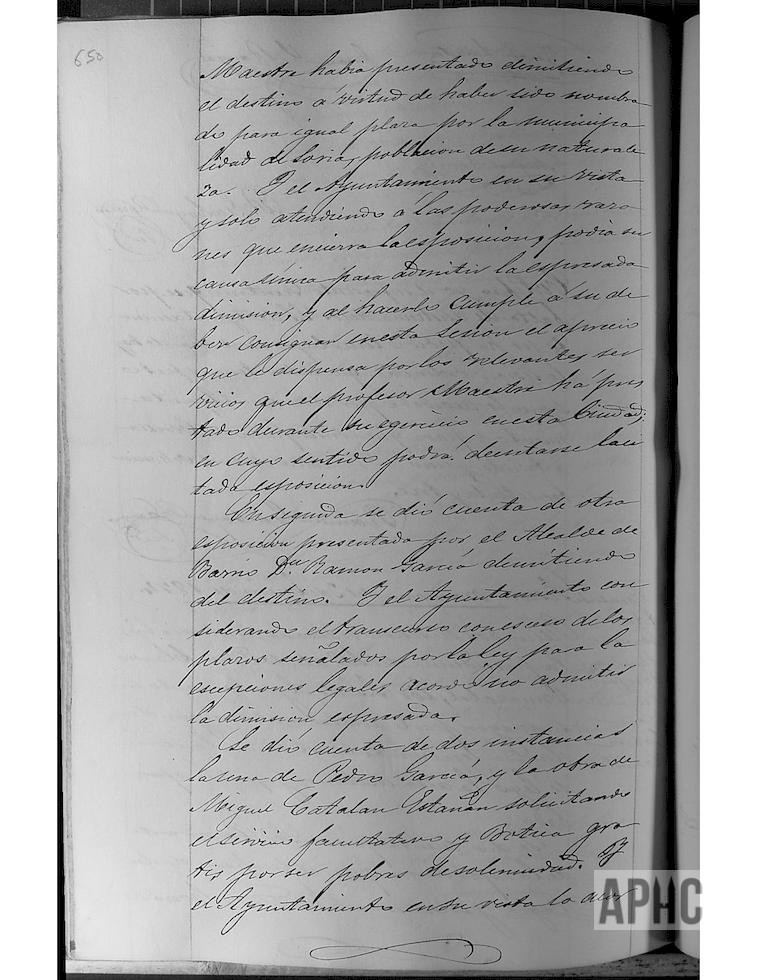 650
Maestre habia presentado dimitiendo
el destino á virtud de haber sido nombra
do para igual plaza por la municipa
lidad de Soria, poblacion de su naturale
za. Y el Ayuntamiento en su vista
y solo atendiendo á las poderosas razo
nes que encierra la esposicion, podia su
causa única para admitir la espresada
dimision, y al hacerlo cumple á su de
ber consignar en esta Sesion el aprecio
que le dispensa por los relevantes ser
vicios que el profesor Maestre há pres
tado durante su egercicio en esta Ciudad;
en cuyo sentido podrá decretarse la ci
tada esposicion.
Enseguida se dió cuenta de otra
esposicion presentada por el Alcalde de
Barrio Dn. Ramon Garcia dimitiendo
del destino. Y el Ayuntamiento con
siderando el transcurso con esceso de los
plazos señalados por la ley para la
escepciones legales acordó no admitir
la dimision espresada.
Se dió cuenta de dos instancias
la una de Pedro Garcia, y la otra de
Miguel Catalan Estañan solicitando
el servicio facultativo y Botica gra
tis por ser pobres de solemnidad. Y
el Ayuntamiento en su vista lo acor
APHC